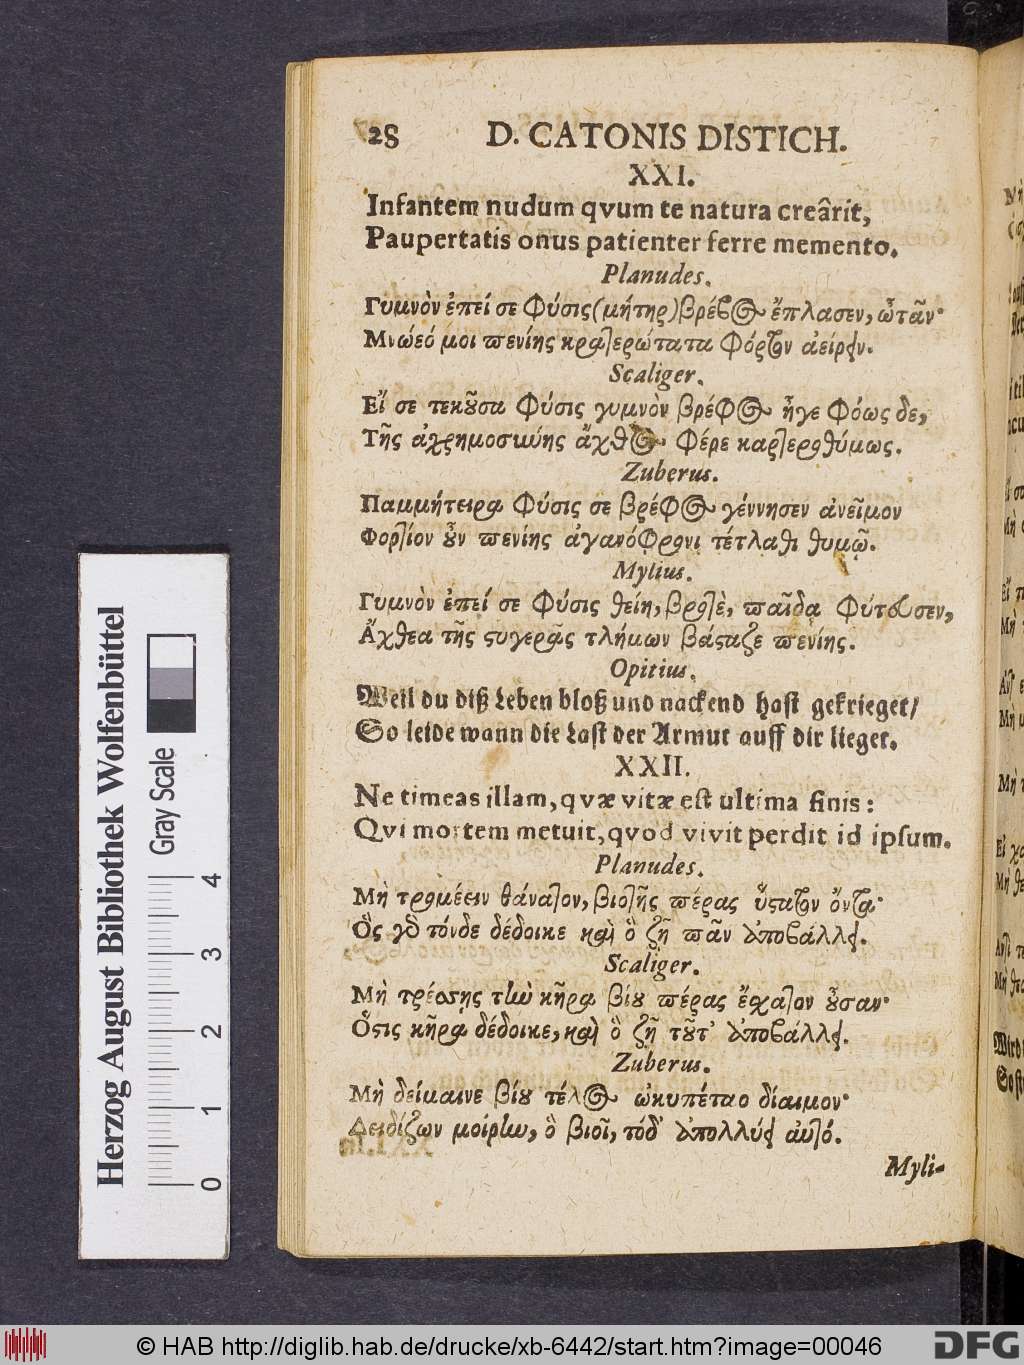 28 D. CATONIS DISTICH.
XXI.
Infantem nudum qvum te natura creârit,
Paupertatis onus patienter ferre memento.
Planudes.
Γυμνὸν ἐπεί σε Φύσις (μήτηρ) βρέφος ἔπλασεν, ὦταν·
Μνώεό μοι πενίης κρατερώτατα Φόρτον ἀείρειν.
Scaliger.
Εἴ σε τεκοῦσα Φύσις γυμνὸν βρέφος ἦγε Φόως δε,
Τῆς ἀχρημοσύνης ἄχθος Φέρε καρτεροθύμως.
Zuberus.
Παμμήτειρα Φύσις σε βρέφος γέννησεν ἀνεῖμον
Φορτίον οὖν πενίης ἀγανόφρονι τέτλαθι θυμῷ.
Mylius.
Γυμνὸν ἐπεί σε Φύσις θείη, βροτὲ, παῖδα Φύτευσεν,
Ἄχθεα τῆς στυγερᾶς τλήμων βάσταζε πενίης.
Opitius.
Weil du diß Leben bloß und nackend hast gekrieget/
So leide wann die Last der Armut auff dir lieget.
XXII.
Ne timeas illam, qvæ vitæ est ultima finis:
Qvi mortem metuit, qvod vivit perdit id ipsum.
Planudes.
Μὴ τρομέειν θάνατον, βιοτῆς πέρας ὕστατον ὄντα·
Ὃς γὰρ τόνδε δέδοικε καὶ ὃ ζῇ πᾶν ἀποβάλλει.
Scaliger.
Μὴ τρέσῃς τὴν κῆρα βίου πέρας ἔσχατον οὖσαν·
Ὅστις κῆρα δέδοικε, καὶ ὃ ζῇ τοῦτ' ἀποβάλλει.
Zuberus.
Μὴ δείμαινε βίου τέλος ὠκυπέταο δίαιμον·
Δειδίζων μοίρην, ὃ βιοῖ, τόδ' ἀπολλύει αὐτό.
Myli-
Herzog August Bibliothek Wolfenbüttel
Gray Scale
0 1 2 3 4
© HAB http://diglib.hab.de/drucke/xb-6442/start.htm?image=00046
DFG